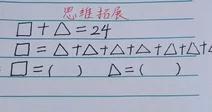 思维拓展
□+△=24
□=△+△+△+△+△+△+
□=( ) △=( )